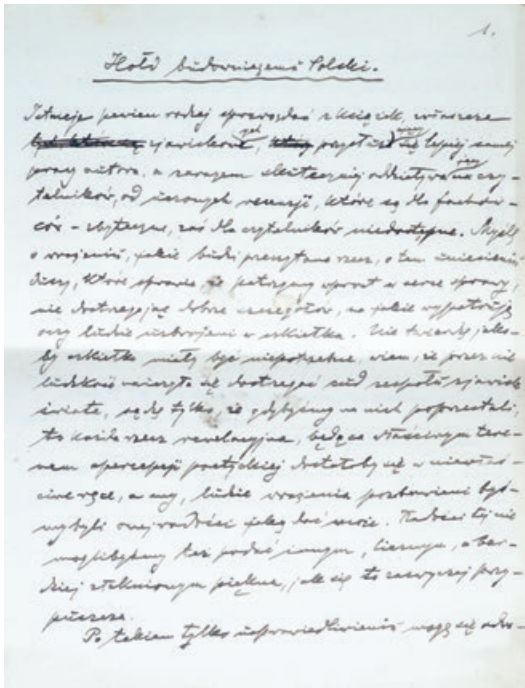 1.
Hołd budowniczemu Polski.
Istnieje pewien rodzaj sprawozdań z książek, zwłaszcza
zjawiskowe, jak przysłużą się lepiej samej
pracy autora, a zarazem skuteczniej oddziływa na czy-
telników, od uczonych recenzji, które są dla fachow-
ców – zbyteczne, zaś dla czytelników niedostępne. Myślę
o wrażeniu, jakie budzi przeczytana rzecz, o tem uniesieniu
duszy, które sprawia, że patrzymy wprost w serce sprawy,
nie dostrzegając dobrze szczegółów, na jakie wypatrują
oczy ludzie uzbrojeni w szkiełka. Nie twierdzę, jako-
by szkiełka miały być niepotrzebne, wiem, że przez nie
ludzkość nauczyła się dostrzegać cud zespołu zjawisk
świata, sądzę tylko, że gdybyśmy na nich poprzestali,
to każda rzecz rewelacyjna, będąca właściwym tere-
nem apercepcji poetyckiej dostałaby się w niewłaś-
ciwe ręce, a my, ludzie wrażenia pozbawieni był-
my byli owej radości jaką dać może. Radości tej nie
moglibyśmy też podać innym, licznym, a bar-
dziej stęsknionym piękna, jak się to zazwyczaj przy-
puszcza.
Po takiem tylko usprawiedliwieniu mogę się